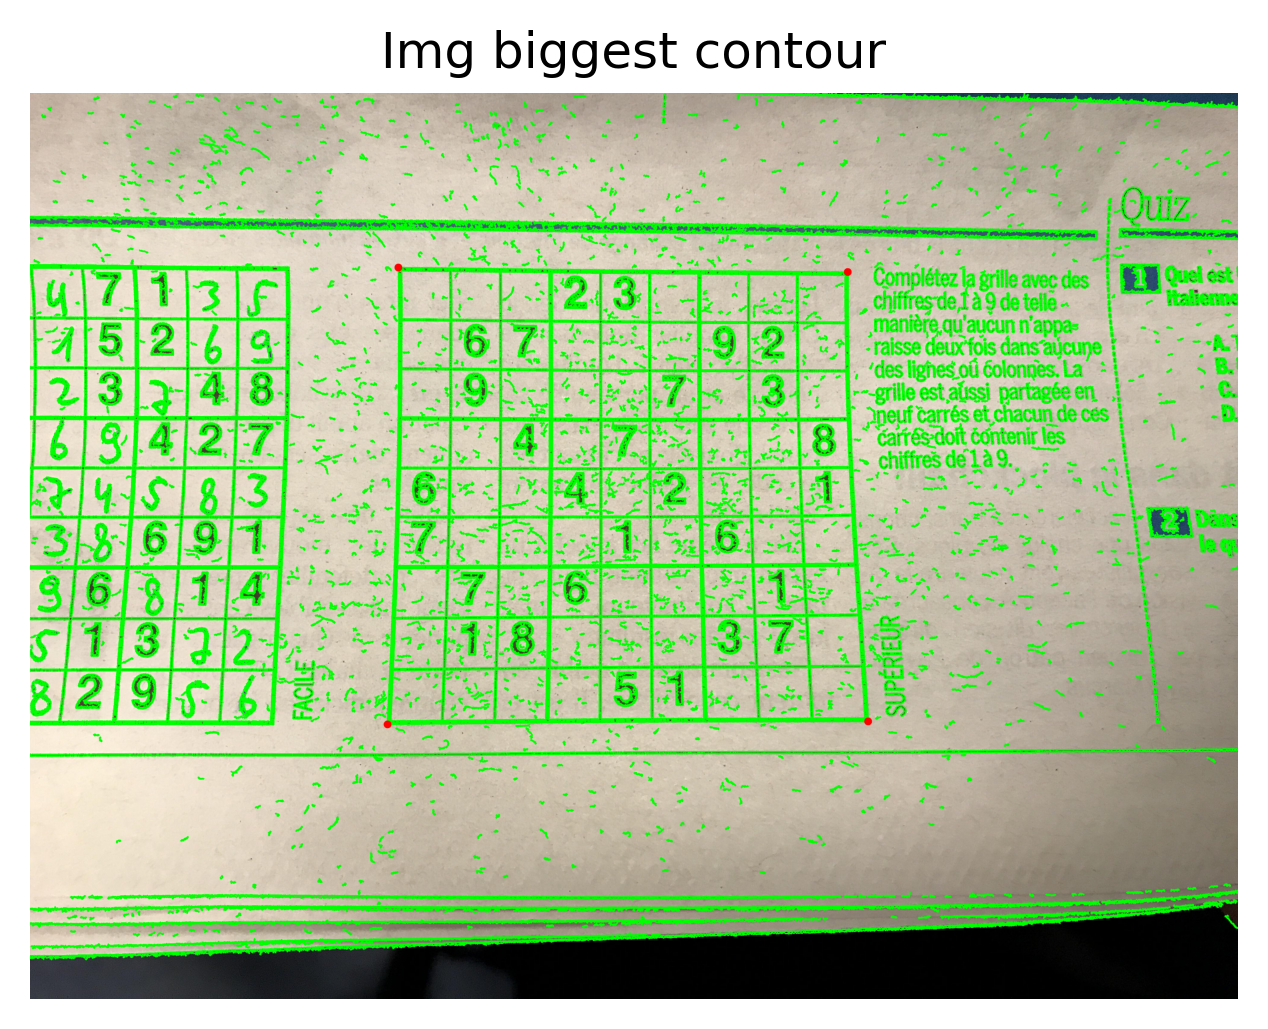 Img biggest contour
Quiz
4 7 1 3 5
1 5 2 6 9
2 3 7 4 8
6 9 4 2 7
7 4 5 8 3
3 8 6 9 1
9 6 8 1 4
5 1 3 7 2
8 2 9 5 6
FACILE
2 3
6 7 9 2
9 7 3
4 7 8
6 4 2 1
7 1 6
7 6 1
1 8 3 7
5 1
SUPÉRIEUR
Complétez la grille avec des
chiffres de 1 à 9 de telle
manière qu'aucun n'appa-
raisse deux fois dans aucune
des lignes ou colonnes. La
grille est aussi partagée en
neuf carrés et chacun de ces
carrés doit contenir les
chiffres de 1 à 9.
1 Quel est
Italienne
A.
B.
C.
D.
2 Dans
le